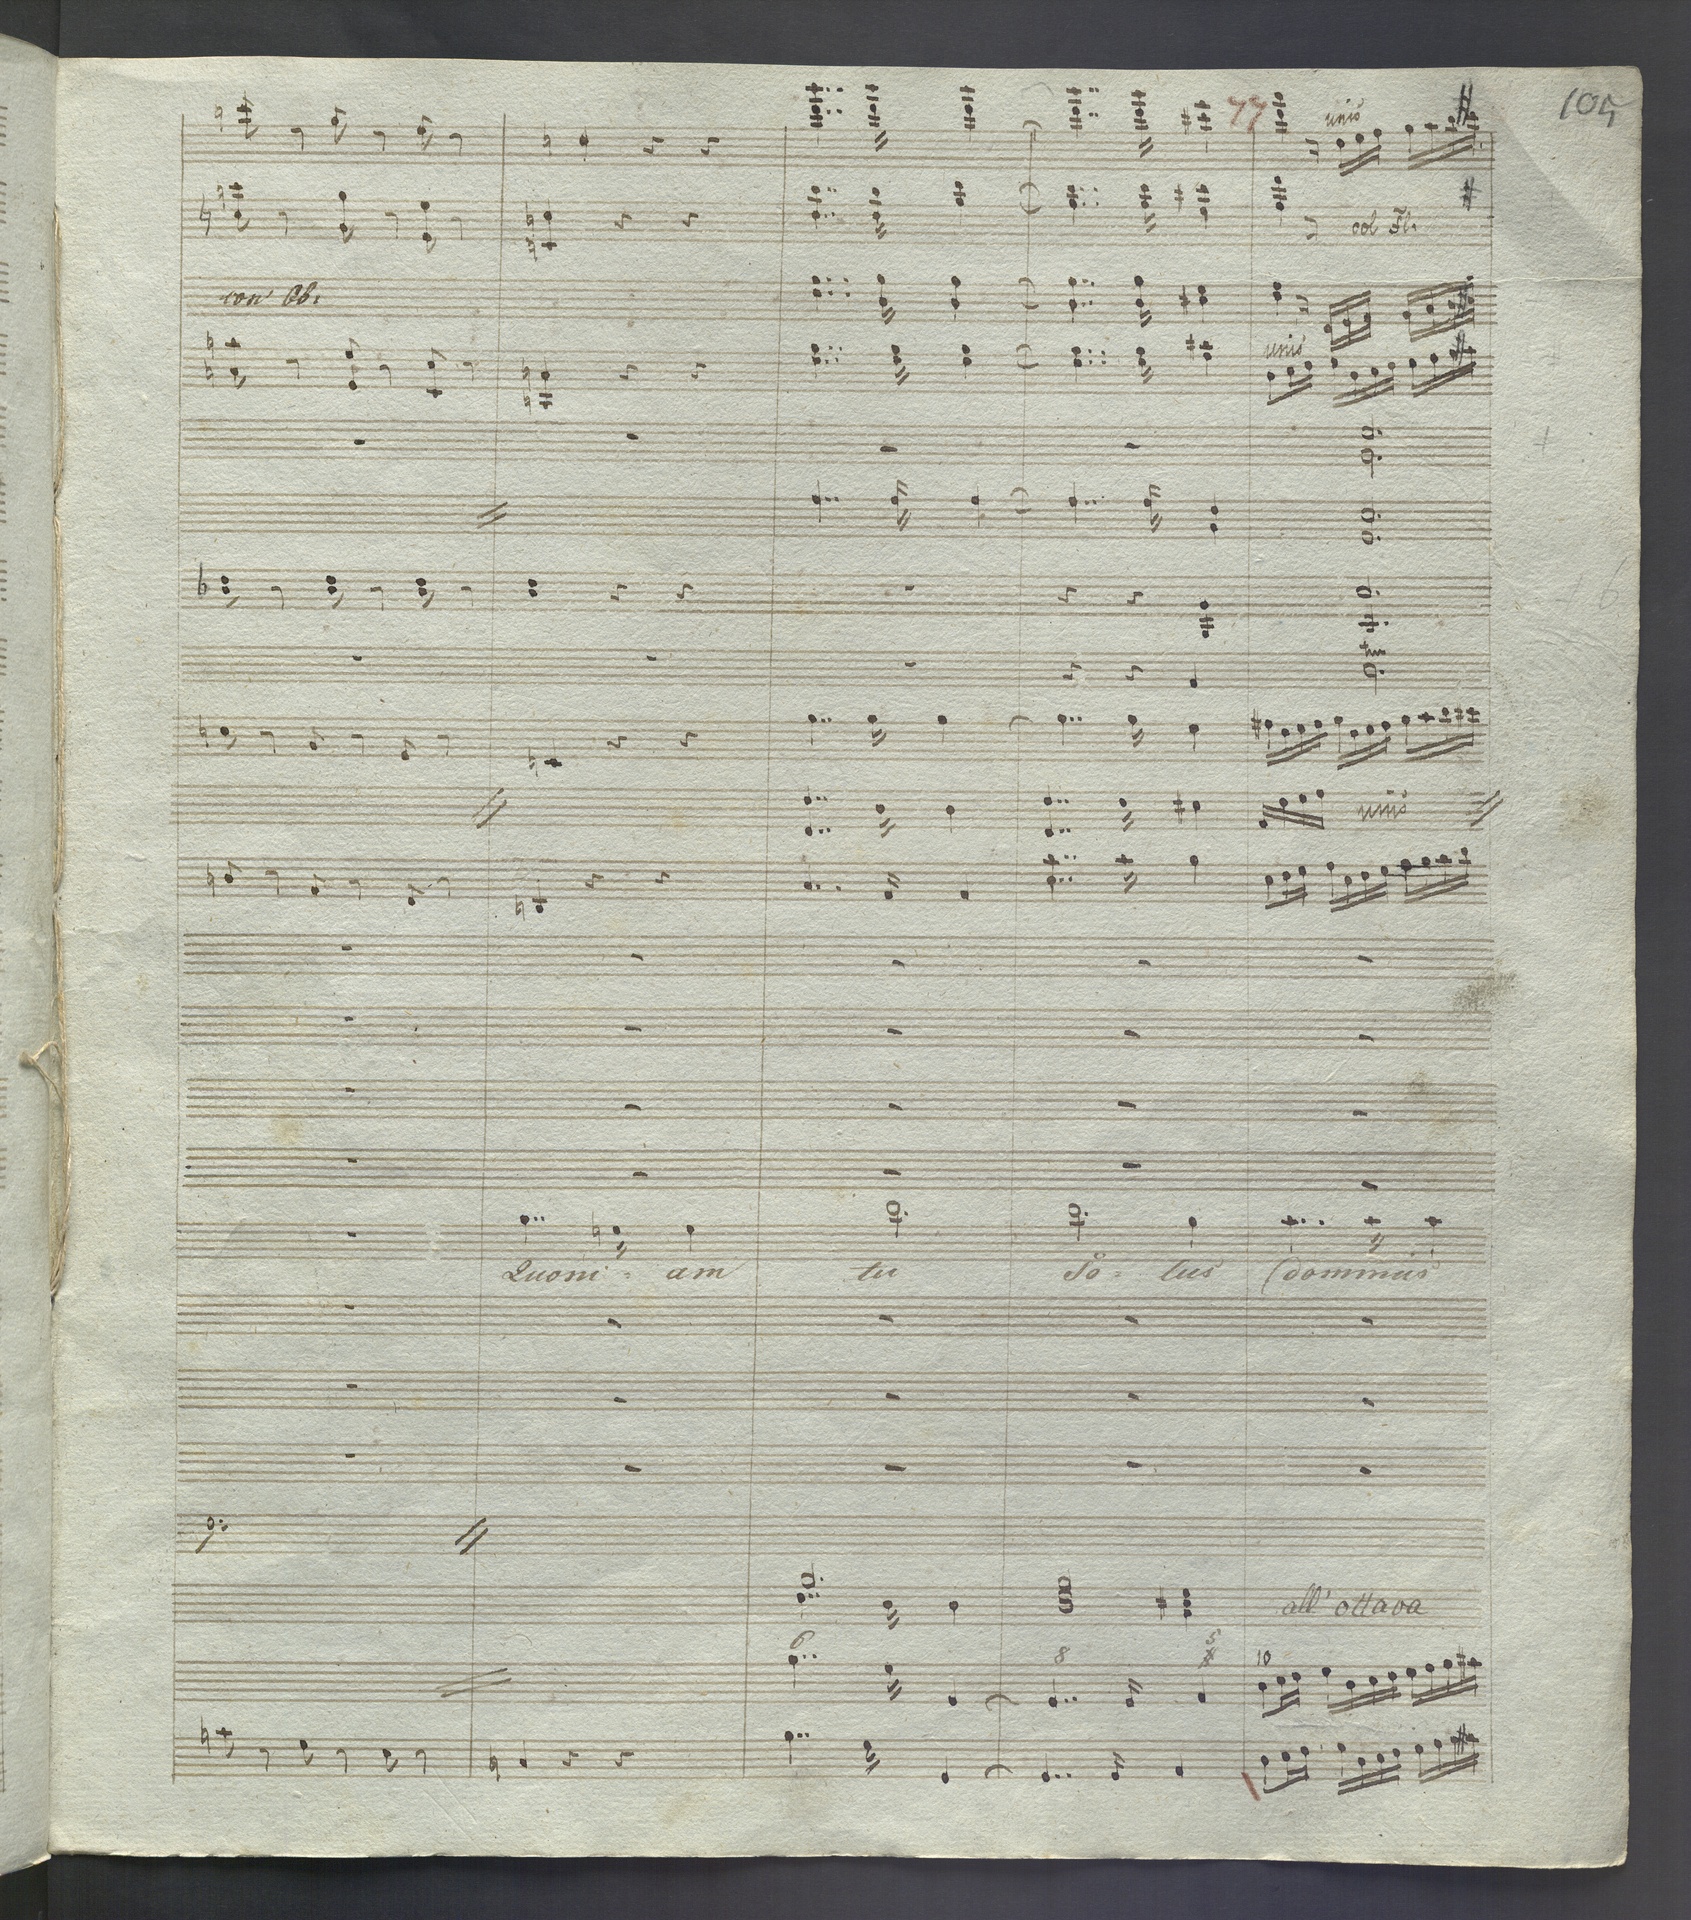 105
77
unis
col Fl.
con Ob.
unis
unis
Quoni = am tu So = lus Dominus
all' ottava
6 8 5
10